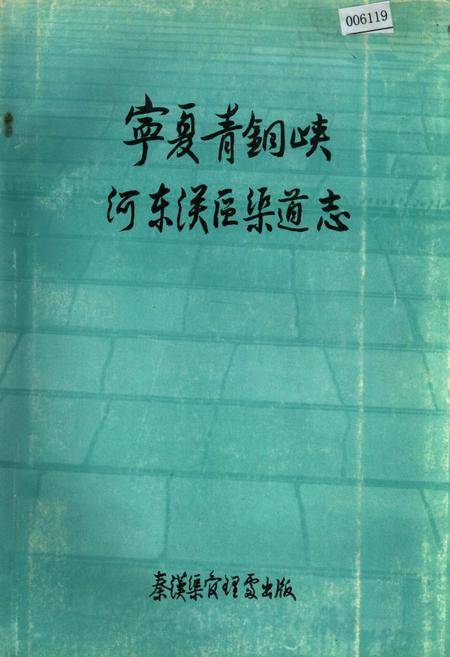 006119
寧夏青銅峡
河东漢区渠道志
秦漢渠管理處出版